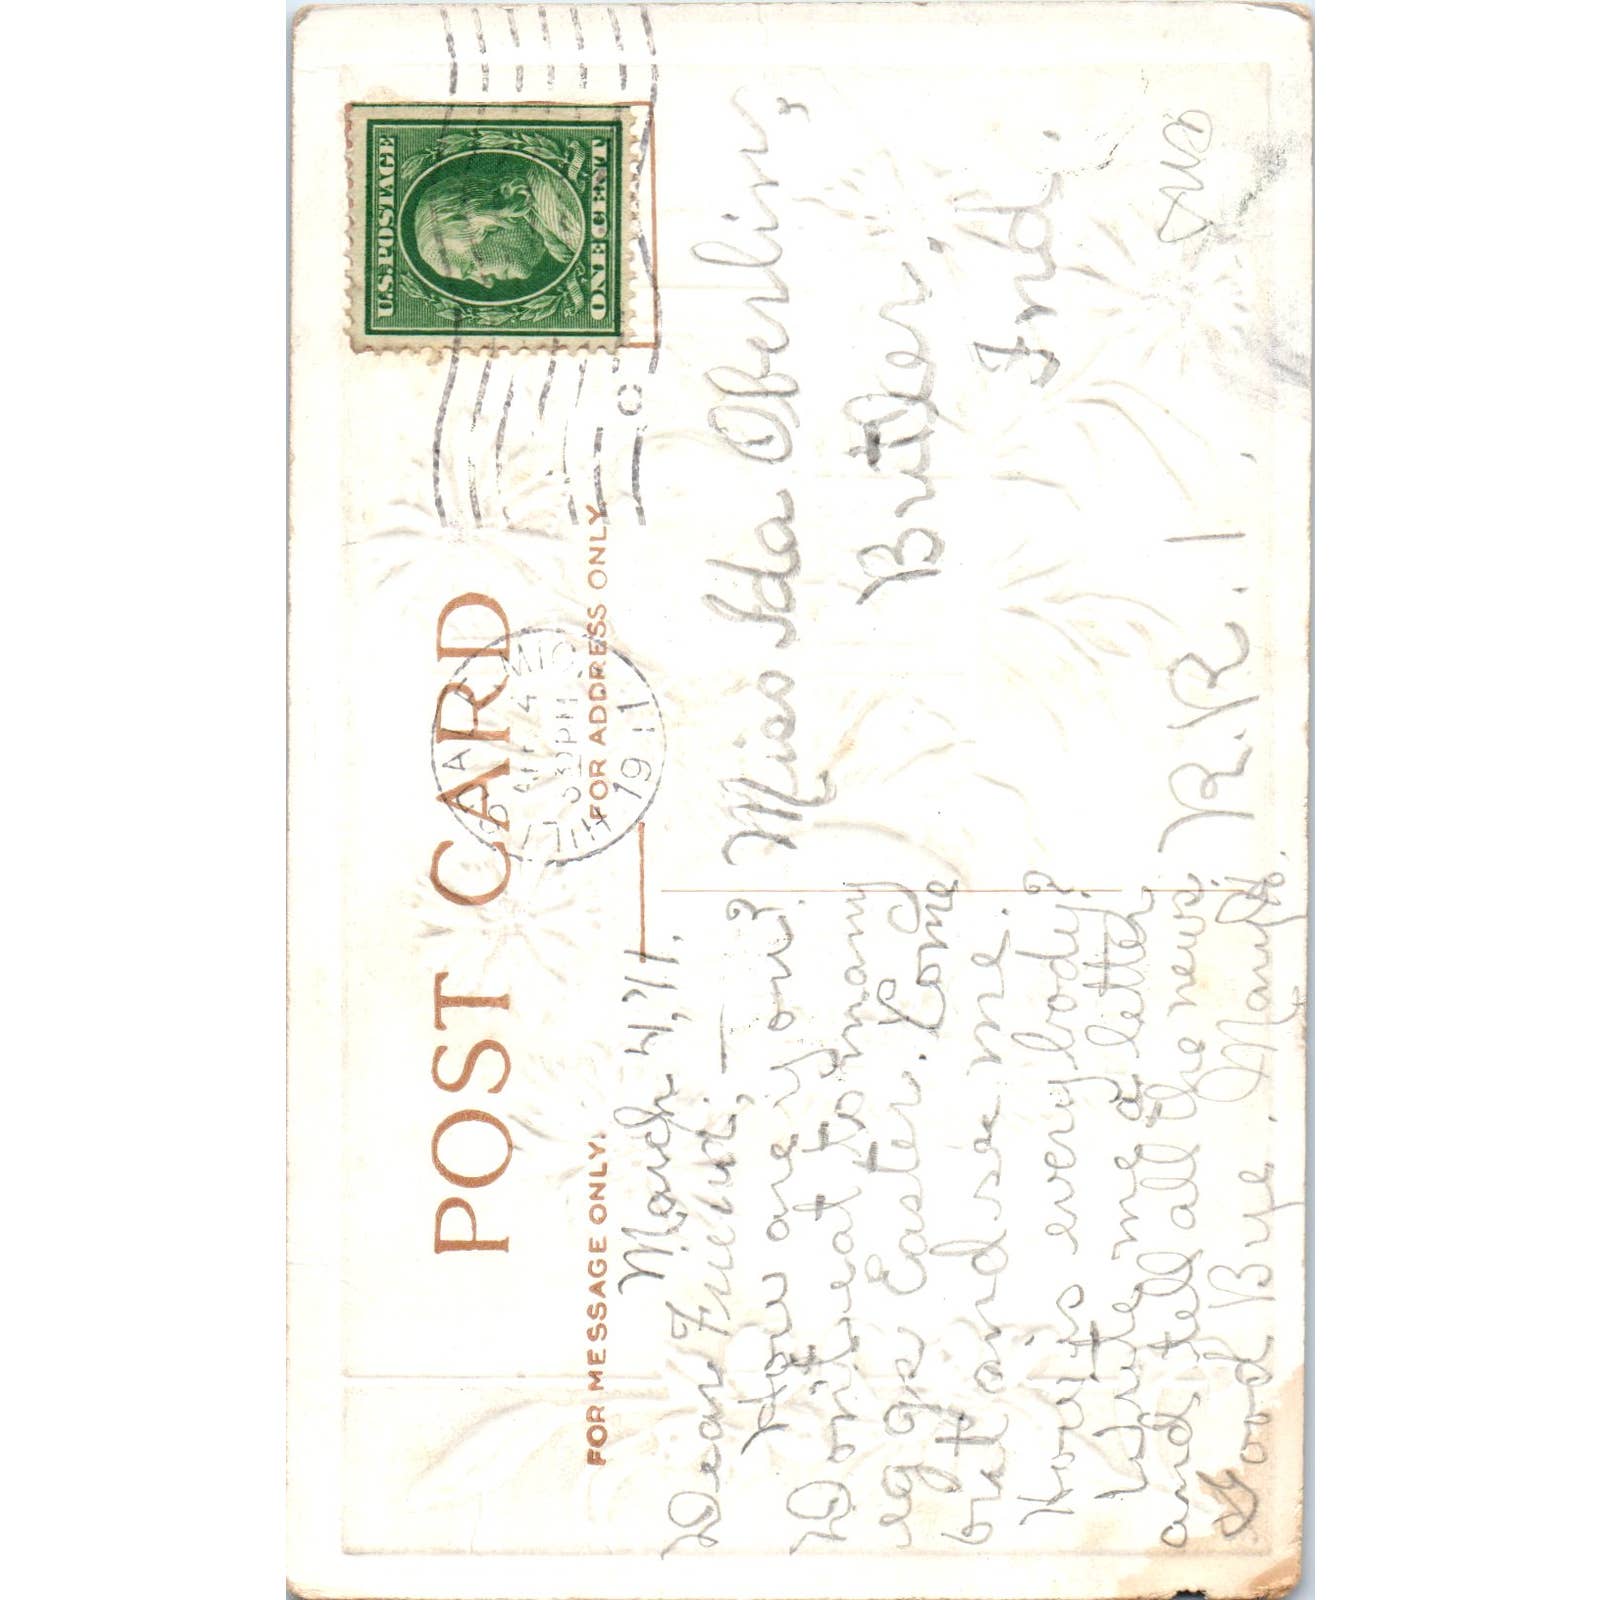 POST CARD
U.S. POSTAGE
ONE CENT
FOR MESSAGE ONLY.
FOR ADDRESS ONLY
4
30 PM
1911
March 4, '11.
Dear Friend, —
How are you?
Don't eat to many
eggs Easter. Come
out and see me.
How is every body?
Write me a letter
and tell all the news
Good Bye.
Miss Ida Oberlin,
Butler,
Ind.
R.R. 1.